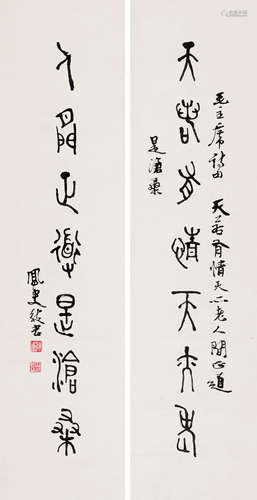 天若有情天亦老
毛主席詩
天若有情天亦老人間正道
是滄桑
人間正道是滄桑